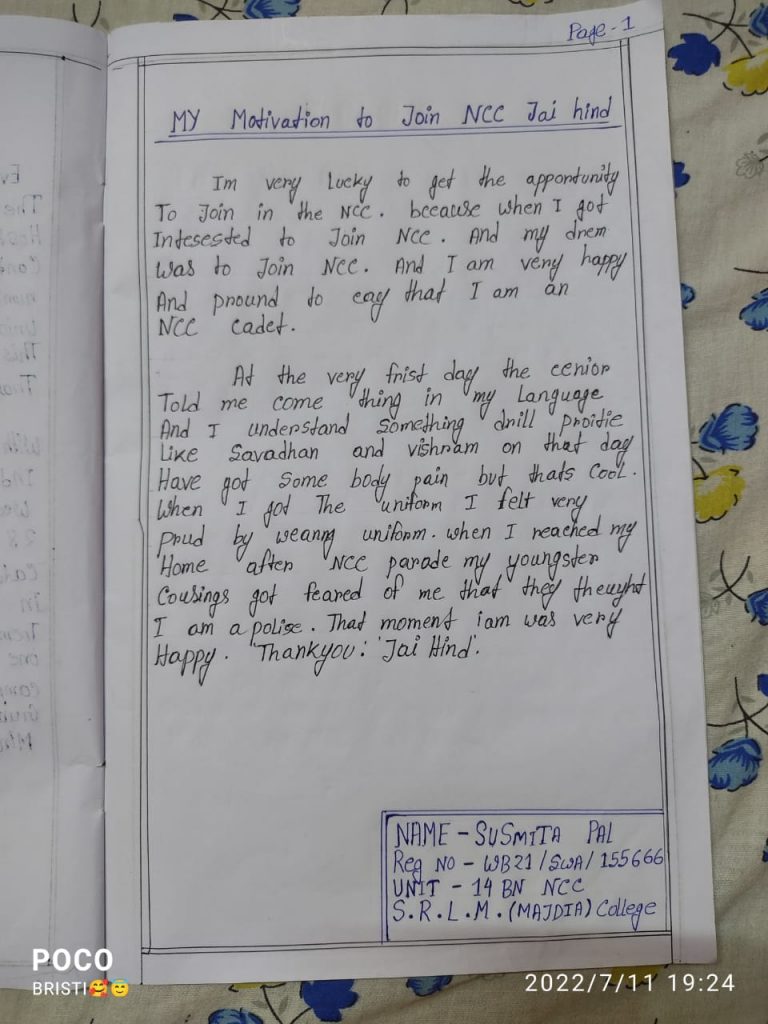 Page-1
MY Motivation to Join NCC Jai hind
Im very lucky to get the apportunity
To Join in the NCC. beceause when I got
Intesested to Join NCC. And my drem
was to Join NCC. And I am very happy
And pround to cay that I am an
NCC cadet.
At the very frist day the cenior
Told me come thing in my Language
And I understand something drill
Like Savadhan and vishram on that day
Have got some body pain but thats Cool.
When I got The uniform I felt very
prud by weanng uniform. when I reached my
Home after NCC parade my youngster
Cousings got feared of me that they theuyht
I am a polise. That moment iam was very
Happy. 'Thankyou:' 'Jai Hind'.
NAME - SUSMITA PAL
Reg NO - WB21/SWA/155666
UNIT - 14 BN NCC
S.R.L.M. (MAJDIA) College
POCO
BRISTI🥰😇
2022/7/11 19:24